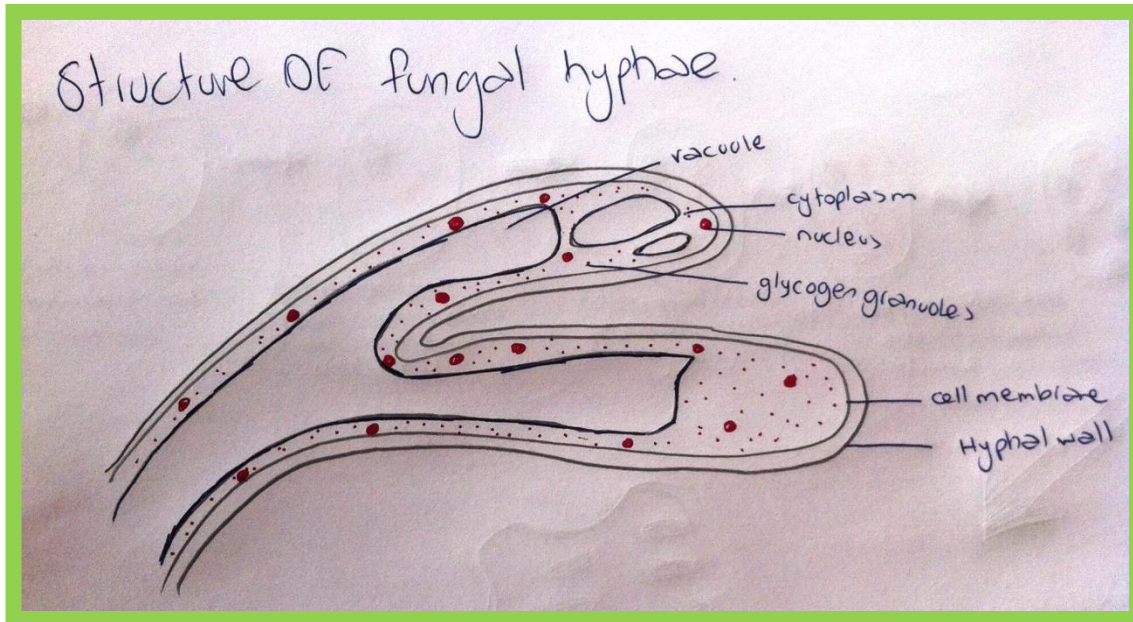 Structure OF fungal hyphae.
vacuole
cytoplasm
nucleus
glycogen granules
cell membrane
Hyphal wall